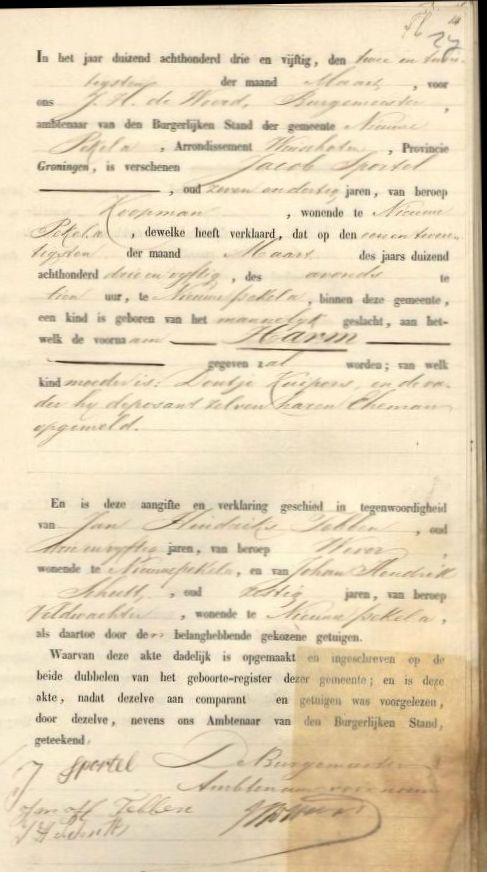 27
In het jaar duizend achthonderd drie en vijftig, den twee en twin-
tigsten der maand Maart, voor
ons J. H. de Weerd, Burgemeester,
ambtenaar van den Burgerlijken Stand der gemeente Nieuwe
Pekela, Arrondissement Winschoten, Provincie
Groningen, is verschenen Jacob Sportel
, oud zeven en dertig jaren, van beroep
Koopman, wonende te Nieuwe
Pekela, dewelke heeft verklaard, dat op den een en twin-
tigsten der maand Maart des jaars duizend
achthonderd drie en vyftig, des avonds te
tien uur, te Nieuwe Pekela, binnen deze gemeente,
een kind is geboren van het mannelyk geslacht, aan het-
welk de voornaam Harm
gegeven zal worden; van welk
kind moeder is: Doutje Kuipers, en de va-
der hy deposant zelven haren Eheman
opgemeld.
En is deze aangifte en verklaring geschied in tegenwoordigheid
van Jan Hindriks Tebben, oud
en vyftig jaren, van beroep Wever,
wonende te Nieuwe Pekela, en van Johan Hendrik
Schultz, oud zestig jaren, van beroep
Veldwachter, wonende te Nieuwe Pekela,
als daartoe door den belanghebbende gekozene getuigen.
Waarvan deze akte dadelijk is opgemaakt en ingeschreven op de
beide dubbelen van het geboorte-register dezer gemeente; en is deze
akte, nadat dezelve aan comparant en getuigen was voorgelezen,
door dezelve, nevens ons Ambtenaar van den Burgerlijken Stand,
geteekend.
J Sportel De Burgemeester
Ambtenaar voornoemd
Jan H Tebben
J H Schultz